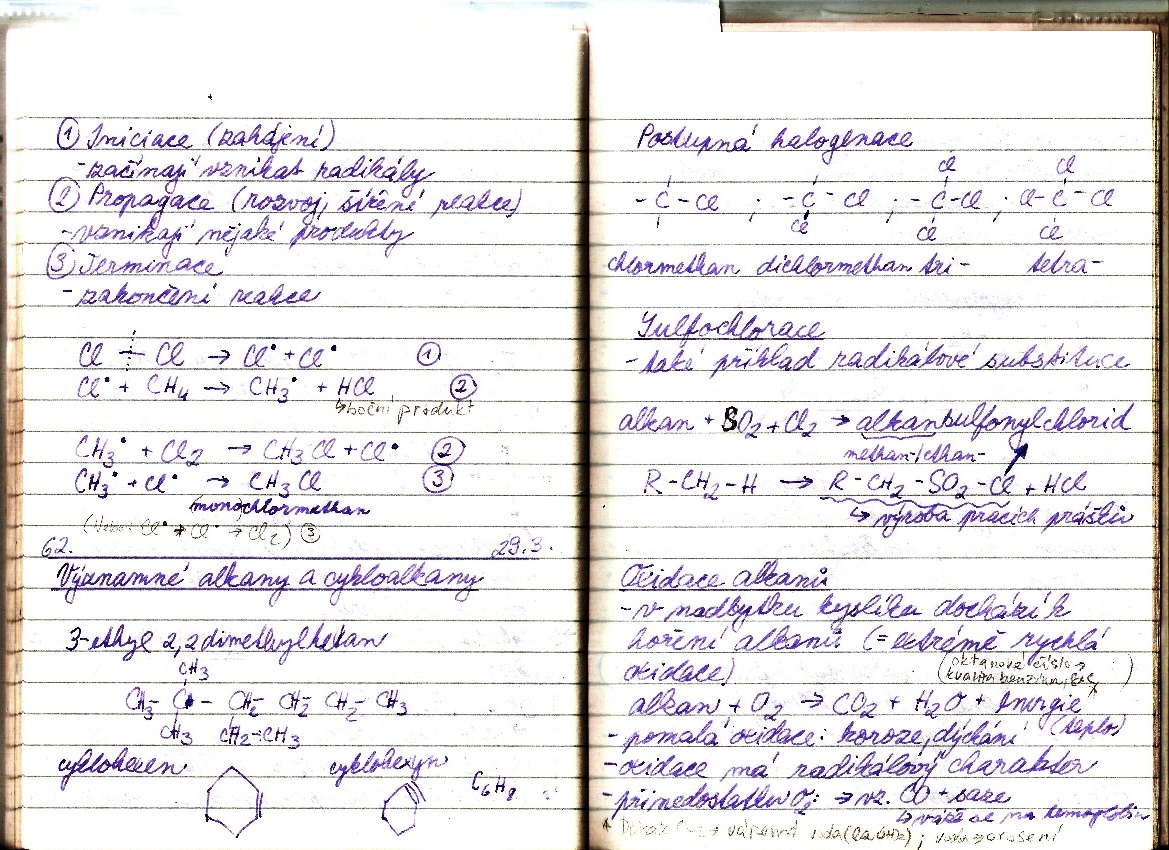 ① Iniciace (zahájení)
- začínají vznikat radikály
② Propagace (rozvoj, šíření reakce)
- vznikají nějaké produkty
③ Terminace
- zakončení reakce
Cl + Cl → Cl• + Cl• ①
Cl• + CH4 → CH3• + HCl ②
↳ boční produkt
CH3• + Cl2 → CH3Cl + Cl• ②
CH3• + Cl• → CH3Cl ③
(mono)chlormethan
(nebo: Cl• + Cl• → Cl2) ③
62. 29.3.
Významné alkany a cykloalkany
3-ethyl 2,2 dimethylhexan
CH3
CH3 - C - CH2 - CH2 - CH2 - CH3
CH3 CH2-CH3
cyklohexen cyklohexyn C6H8
Postupná halogenace
Cl Cl
- C - Cl ; - C - Cl ; - C - Cl ; Cl - C - Cl
Cl Cl Cl
chlormethan dichlormethan tri- tetra-
Sulfochlorace
- také příklad radikálové substituce
alkan + SO2 + Cl2 → alkansulfonylchlorid
methan-/ethan-
R-CH2-H → R-CH2-SO2-Cl + HCl
↳ výroba pracích prášků
Oxidace alkanů
- v nadbytku kyslíku dochází k
hoření alkanů (= extrémě rychlá
oxidace)
(oktanové číslo →
kvalita benzínu,
alkan + O2 → CO2 + H2O + energie
(teplo)
- pomalá oxidace: koroze, dýchání
- oxidace má radikálový charakter
- při nedostatku O2: → vz. CO + saze
↳ váže se na hemoglobin
* Důkaz CO2 → vápenná voda (Ca(OH)2) ; voda → orosení